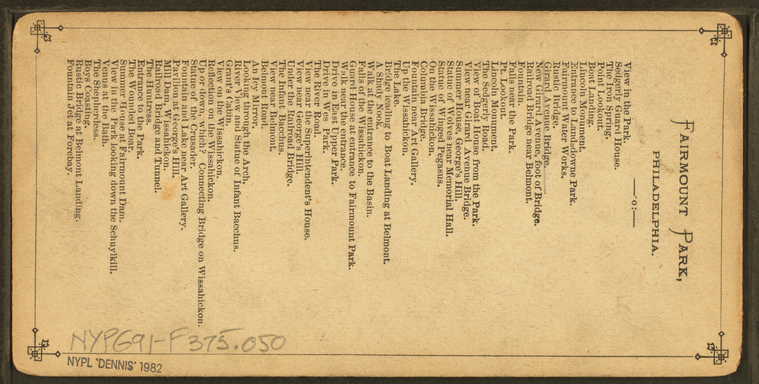 FAIRMOUNT PARK,
PHILADELPHIA.
—:o:—
View in the Park.
Sedgely Guard House.
The Iron Spring.
Point Lookout.
Boat Landing.
Lincoln Monument.
Entrance to Lansdowne Park.
Fairmount Water Works.
Rustic Bridge.
Girard Avenue Bridge.
New Girard Avenue, foot of Bridge.
Railroad Bridge near Belmont.
Falls near the Park.
Pt. Lookout.
Lincoln Monument.
The Sedgerly Road.
View of Boat House from the Park.
View near Girard Avenue Bridge.
Summer House, George's Hill.
Statue of Wolves near Memorial Hall.
Statue of Winged Pegasus.
On the Wissahickon.
Columbia Bridge.
Fountain near Art Gallery.
Up the Wissahickon.
The Lake.
Bridge leading to Boat Landing at Belmont.
A Shady Nook.
Walk at the entrance to the Basin.
Falls of the Wissahickon.
Guard House at entrance to Fairmount Park.
Walk near the entrance.
Drive in East Upper Park.
Drive in West Park.
The River Road.
View near the Superintendent's House.
View near George's Hill.
Under the Railroad Bridge.
The Infant Bacchus.
View near Belmont.
Belmont.
An Icy Mixture.
Looking through the Arch.
River View and Statue of Infant Bacchus.
Grant's Cabin.
View on the Wissahickon.
Reflecting Views, the Wissahickon.
Up or down, which? Connecting Bridge on Wissahickon.
Statue of the Crusader.
Fountain and Vases near Art Gallery.
Pavilion at George's Hill.
Mill Dam, Wissahickon.
Railroad Bridge and Tunnel.
The Huntress.
Entrance to the Park.
The Wounded Boar.
Summer House at Fairmount Dam.
View in the Park looking down the Schuylkill.
Venus at the Bath.
The Shepherdess.
Boys Coasting.
Rustic Bridge at Belmont Landing.
Fountain Jet at Forebay.
NYPG91-F375.050
NYPL 'DENNIS' 1982